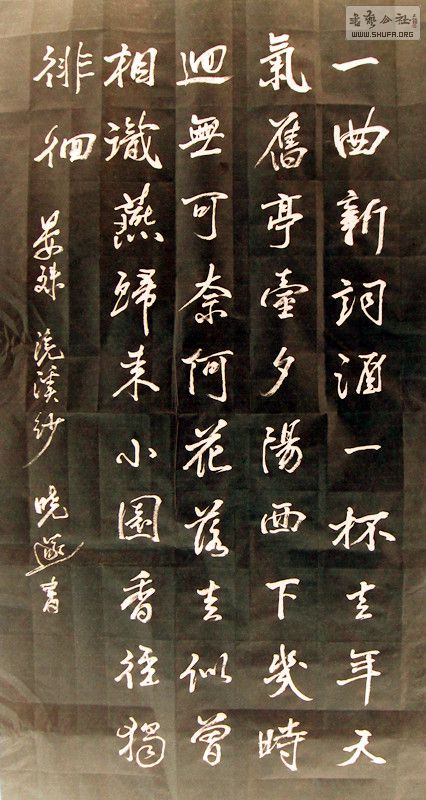 書藝公社
WWW.SHUFA.ORG
一曲新詞酒一杯去年天
氣舊亭臺夕陽西下幾時
迴無可奈何花落去似曾
相識燕歸来小園香徑獨
徘徊 晏殊 浣溪紗 曉書